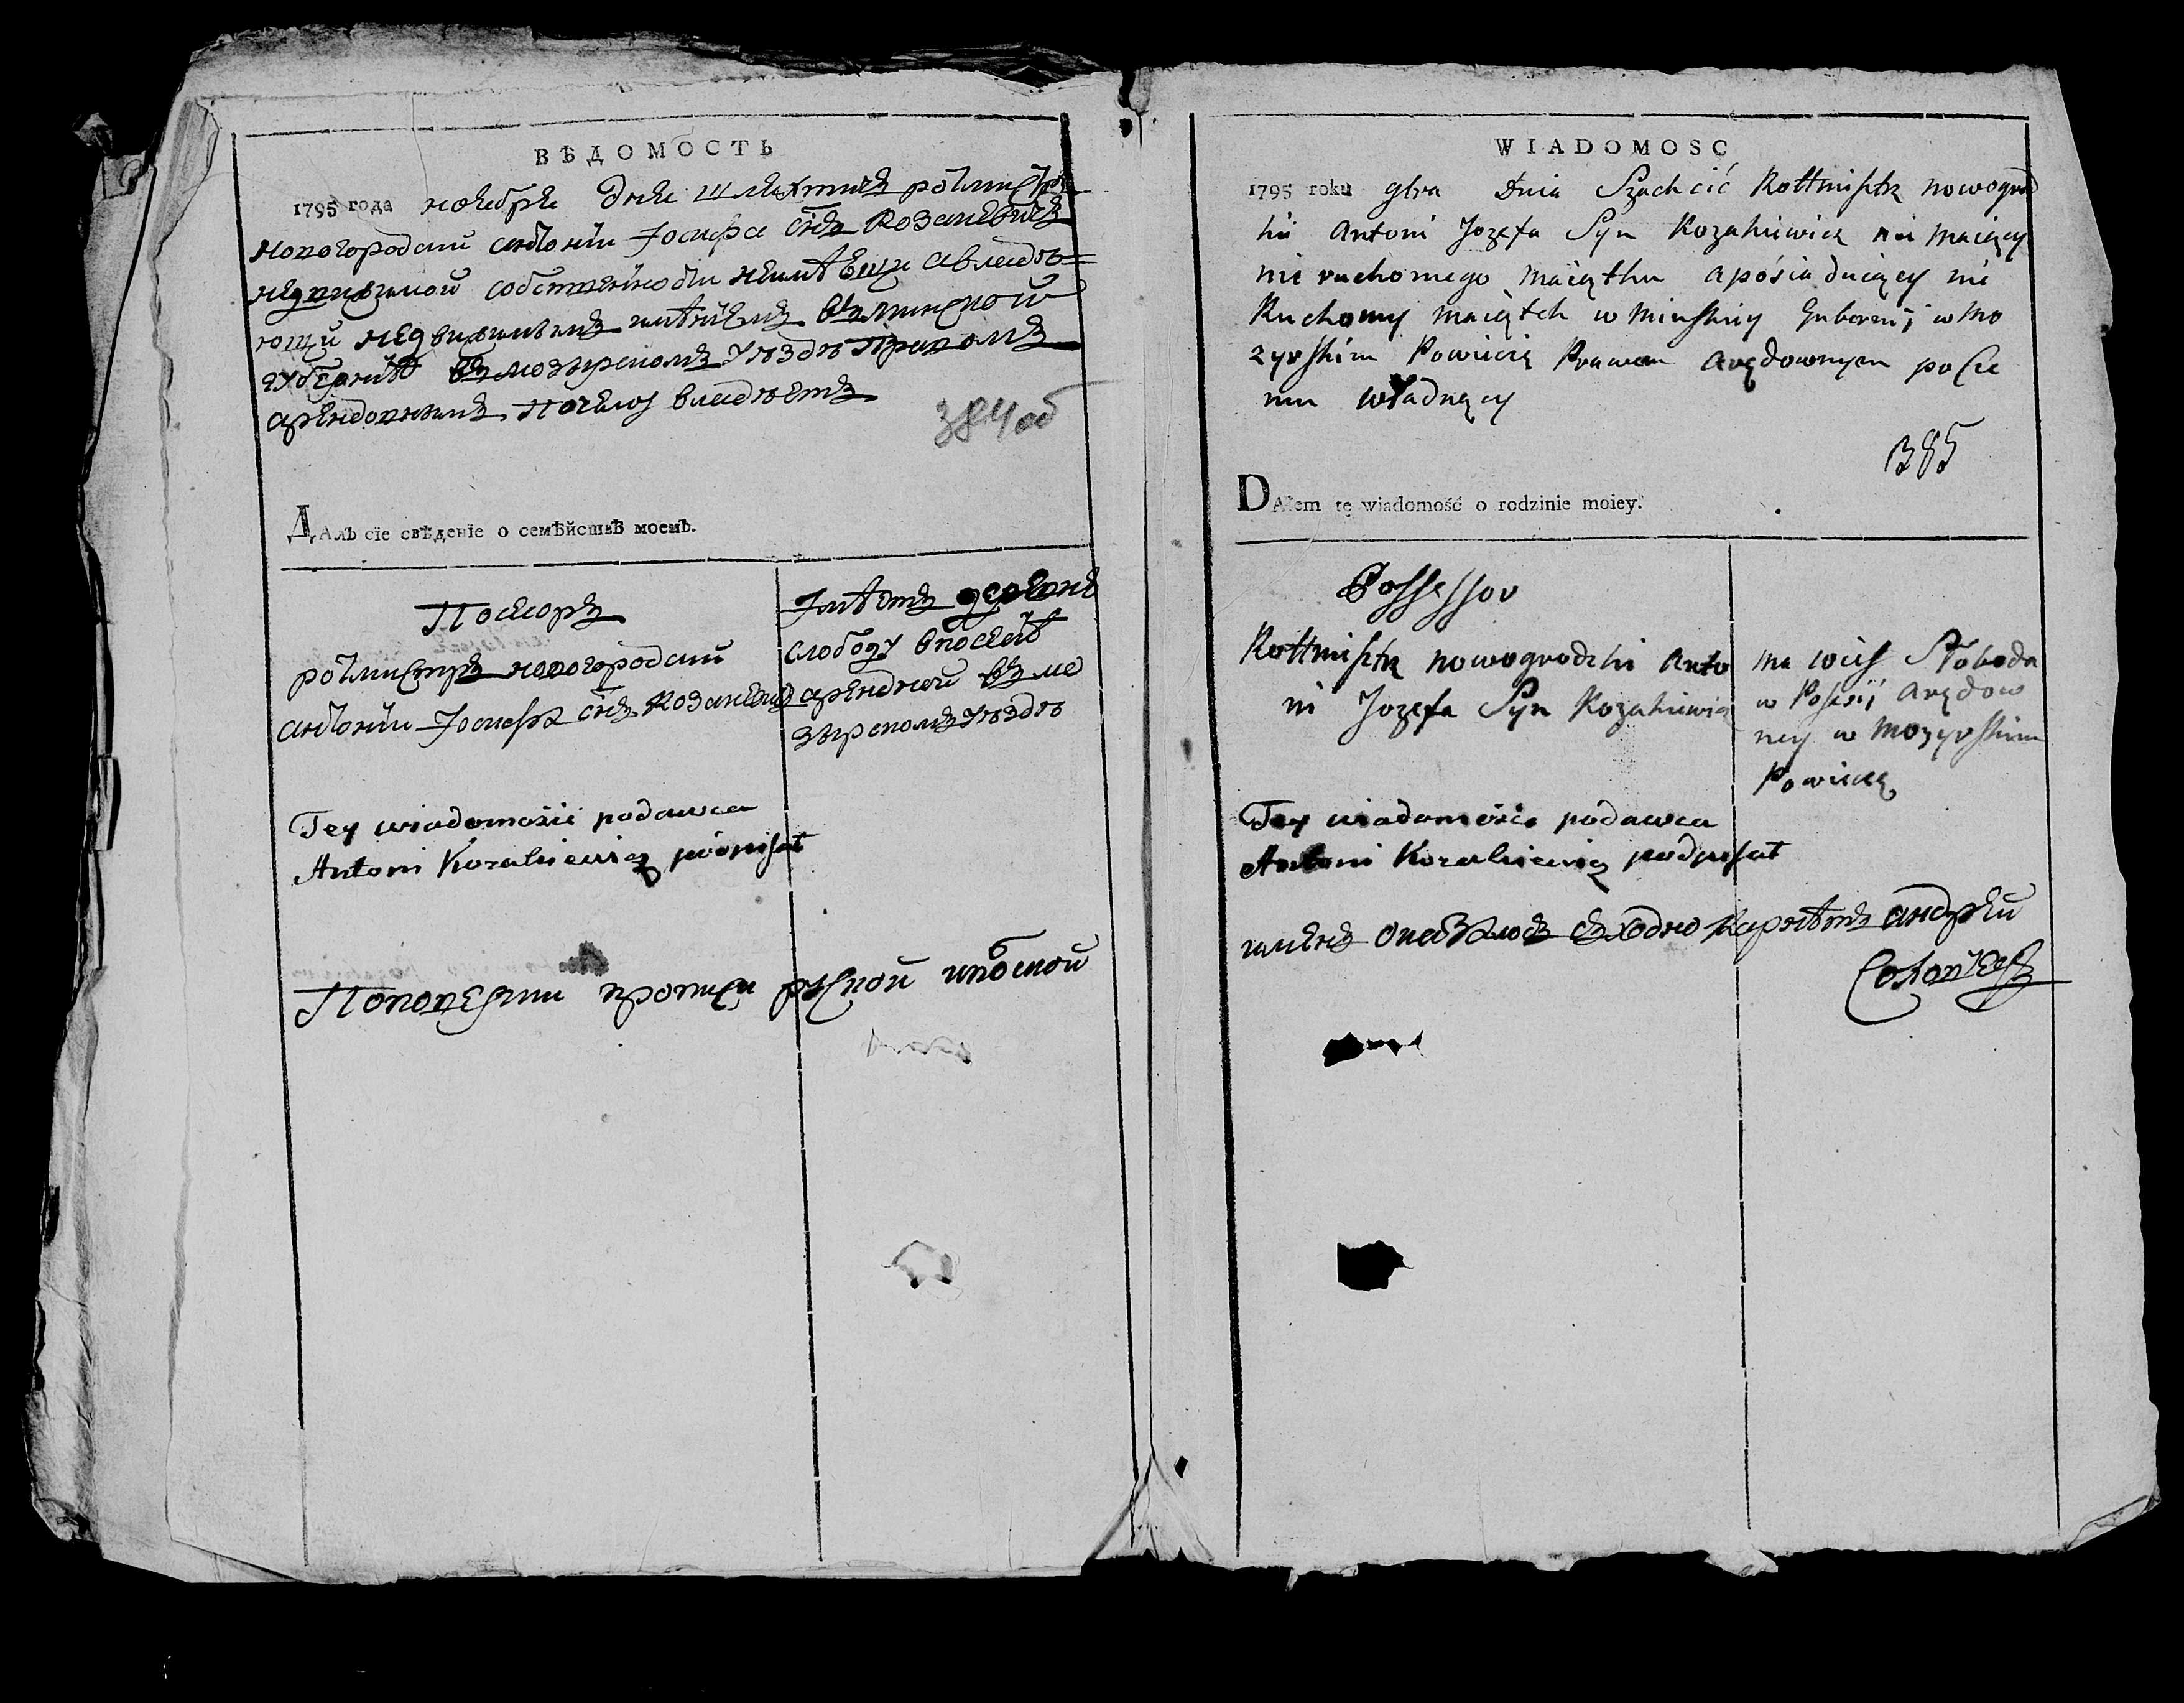 ВѢДОМОСТЬ
1795 года ноября дня шляхтичъ ротмистръ
новогородски антонiи Iосифа снъ козакевичъ
недвижимой собственности неимѣющи авладѣ=
ющи недвижимымъ имѣниемъ въминской
губернiѣ въмозырскомъ уѣздѣ правомъ
арендовнымъ почему владѣетъ
384об
ДАлъ сїе свѣденїе о семѣйствѣ моемъ.
Посесоръ
ротмистръ новогородски
антонiи Iосифа снъ козакевичъ
Iмѣетъ деревню
слободу впосесiи
арендной въ мо
зырскомъ уѣздѣ
Tey wiadomości podawca
Antoni Kozakiewicz podpisał
Поповерки прописи руской ипольской
WIADOMOSC
1795 roku 9bra Dnia Szachcić Rottmistrz nowogrod
ki Antoni Jozefa Syn Kozakiewicz nie maiący
nie ruchomego maiątku a posiaduiący nie
Ruchomy maiątek w Minskiey Gubernij w Mo
zyrskim Powiecie Prawem arędownym po cze
mu władnący
385
DAłem tę wiadomość o rodzinie moiey.
Possessor
Rottmistrz nowogrodzki Anto
ni Jozefa Syn Kozakiewicz
ma wieś Słoboda
w Posesij arędow
ney w Mozyrskim
Powiecie
Tey wiadomości podawca
Antoni Kozakiewicz podpisał
имѣнъ оказалось сходно андреи